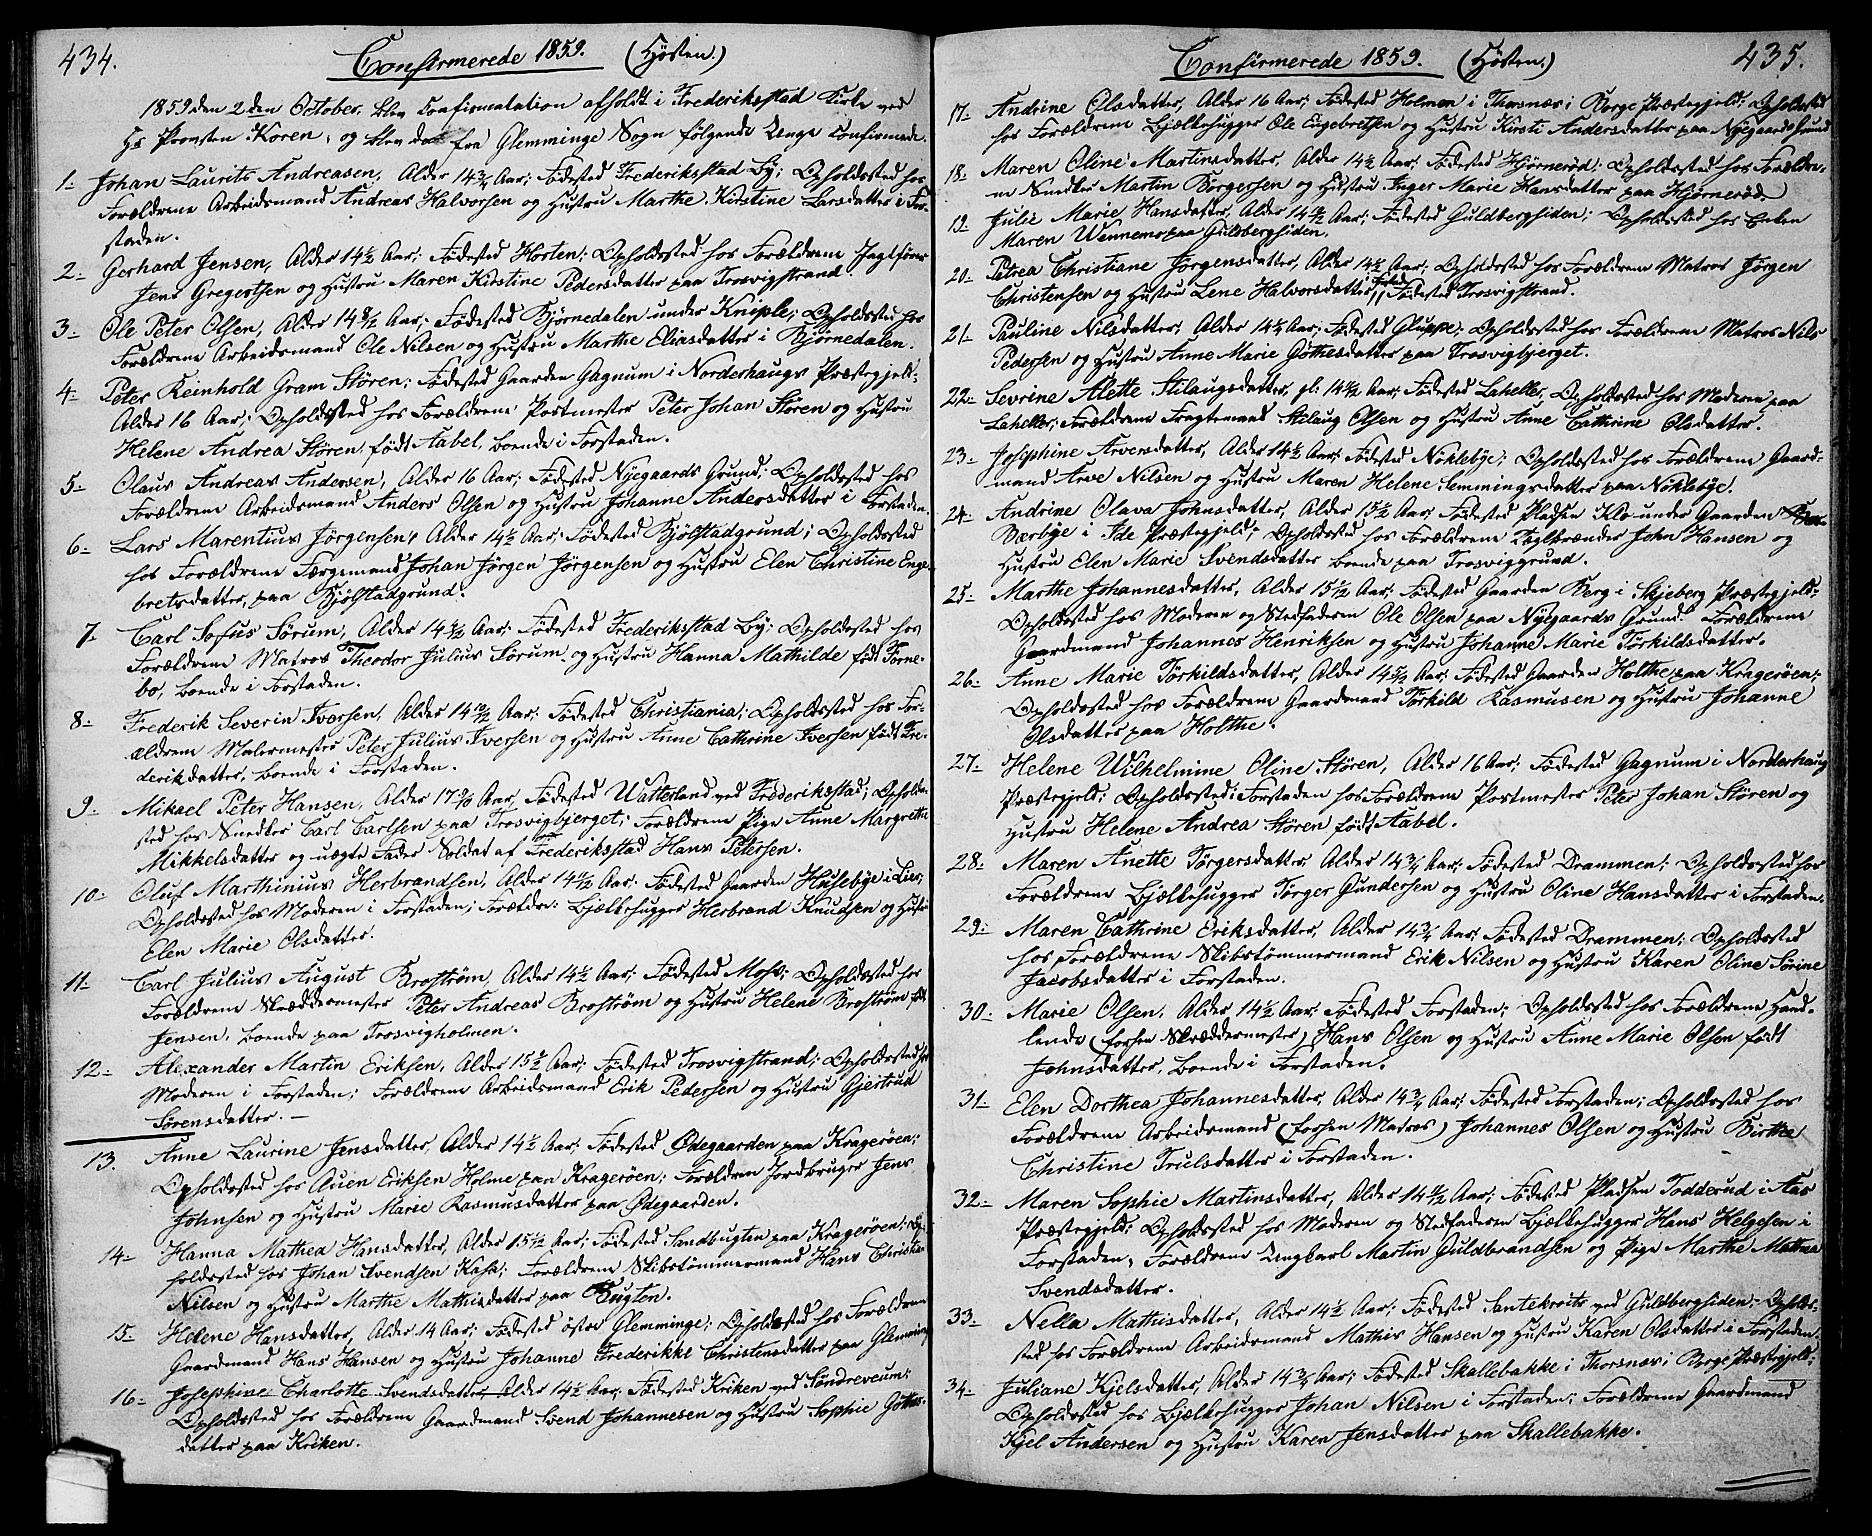 434.
Confirmerede 1859. (Høsten.)
1859 den 2den October, blev Confirmation afholdt i Frederikstad Kirke ved
Hr Provsten Koren, og blev da fra Glemminge Sogn følgende Unge Confirmerede.
1- Johan Laurits Andreasen, Alder 14 3/4 Aar; Fødested Frederikstad By; Opholdssted hos
Forældrene Arbeidsmand Andreas Halvorsen og Hustru Marthe Kirstine Larsdatter i For-
staden.
2- Gerhard Jensen, Alder 14½ Aar; Fødested Horten; Opholdssted hos Forældrene
Jens Gregertsen og Hustru Maren Kirstine Pedersdatter paa Trosvigstrand
3- Ole Peter Olsen, Alder 14 8/12 Aar; Fødested Bjørnedalen under Kniple; Opholdssted hos
Forældrene Arbeidsmand Ole Nilsen og Hustru Marthe Eliasdatter i Bjørnedalen.
4- Peter Reinhold Gram Støren; Fødested Gaarden Gagnum i Norderhaugs Præstegjeld;
Alder 16 Aar; Opholdssted hos Forældrene Postmester Peter Johan Støren og Hustru
Helene Andrea Støren, født Aabel, boende i Forstaden.
5- Olaus Andreas Andersen, Alder 16 Aar; Fødested Nyegaards Grund; Opholdssted hos
Forældrene Arbeidsmand Anders Olsen og Hustru Johanne Andersdatter i Forstaden.
6- Lars Marentius Jörgensen, Alder 14½ Aar; Fødested Bjølstadgrund; Opholdssted
hos Forældrene Færgemand Johan Jörgen Jörgensen og Hustru Elen Christine Enge-
bretsdatter, paa Bjølstadgrund.
7- Carl Sofus Sørum, Alder 14 Aar; Fødested Frederiksstad By; Opholdssted hos
Forældrene Matros Theodor Julius Sørum og Hustru Hanna Mathilde født Torne-
bo, boende i Forstaden.
8- Frederik Severin Iversen, Alder 14 Aar; Fødested Christiania; Opholdssted hos For-
ældrene Malermester Peter Julius Iversen og Hustru Anne Cathrine Iversen født Fre-
deriksdatter, boende i Forstaden.
9- Mikael Peter Hansen, Alder 17 Aar, Fødested Watterland ved Frederiksstad; Opholds-
sted hos Snedker Carl Carlsen paa Trosvigbjerget; Forældrene Pige Anne Margrethe
Mikkelsdatter og uægte Fader Soldat af Frederiksstad Hans Petersen.
10- Oluf Marthinius Herbrandsen, Alder 14 Aar. Fødested Gaarden Husebye i Lier;
Opholdssted hos Moderen i Forstaden; Forældre: Bjelkehugger Herbrand Knudsen og Hustru
Elen Marie Olsdatter.
11- Carl Julius August Broström, Alder 14½ Aar; Fødested Moss; Opholdssted hos
Forældrene Skræddermester Peter Andreas Broström og Hustru Helene Broström født
Jensen, boende paa Trosvigholmen.
12- Alexander Martin Eriksen, Alder 15 Aar; Fødested Trosvigstrand; Opholdssted hos
Moderen i Forstaden; Forældrene Arbeidsmand Erik Pedersen og Hustru Gjertrud
Sørensdatter. —
13. Anne Laurine Jensdatter, Alder 14½ Aar; Fødested Ødegaarden paa Kragerøen;
Opholdssted hos Auen Eriksen Holme paa Kragerøen; Forældrene Jordbruger Jens
Johnsen og Hustru Marie Rasmusdatter paa Ødegaarden.
14- Hanna Mathea Hansdatter, Alder 15 Aar; Fødested Sandbugten paa Kragerøen; Op-
holdssted hos Johan Svendsen Kasa; Forældrene Skibstømmermand Hans Christian
Nilsen og Hustru Marthe Mathisdatter paa Bugten.
15- Helene Hansdatter, Alder 14 Aar; Fødested østre Glemminge; Opholdssted hos Forældrene
Gaardmand Hans Hansen og Hustru Johanne Frederikke Christensdatter paa Glemminge
16- Josephine Charlotte Svendsdatter, Alder 14½ Aar, Fødested Kriken ved Søndreveum;
Opholdssted hos Forældrene Gaardmand Svend Johannesen og Hustru Sophie Gøthes-
datter paa Kriken.
435.
Confirmerede 1859. (Høsten.)
17- Andrine Olsdatter, Alder 16 Aar; Fødested Holmen i Thorsnæs i Borge Præstegjeld; Opholdssted
hos Forældrene Bjelkehugger Ole Engebretsen og Hustru Kirsti Andersdatter paa Nyegaards Grund
18- Maren Oline Martinsdatter, Alder 14½ Aar; Fødested Hjørnerød; Opholdssted hos Forældre-
ne Snedker Martin Borgersen og Hustru Inger Marie Hansdatter paa Hjørnerød.
19- Julie Marie Hansdatter, Alder 14 Aar; Fødested Guldbergsiden; Opholdssted hos Enken
Maren Wennemo paa Guldbergsiden.
20- Petrea Christiane Jörgensdatter, Alder 14½ Aar; Opholdssted hos Forældrene Matros Jörgen
Christensen og Hustru Lene Halvorsdatter; Fødested Trosvigstrand.
21- Pauline Nilsdatter, Alder 14½ Aar; Fødested Gluppe; Opholdssted hos Forældrene Matros Nils
Pedersen og Hustru Anne Marie Göthesdatter paa Trosvigbjerget.
22- Sevrine Alette Stilaugsdatter, gl: 14 Aar, Fødested Lahelle; Opholdssted hos Moderen paa
Lahelle; Forældrene Fragtemand Stelaug Olsen og Hustru Anne Cathrine Olsdatter.
23- Josephine Arvesdatter, Alder 14½ Aar; Fødested Nöklebye; Opholdssted hos Forældrene Gaard-
mand Arve Nilsen og Hustru Maren Helene Semmingsdatter paa Nöklebye.
24- Andrine Olava Johnsdatter, Alder 15½ Aar Fødested Pladsen Klo under Gaarden
Bærbye i Ide Præstegjeld; Opholdssted hos Forældrene Teglbrænder John Hansen og
Hustru Elen Marie Svendsdatter boende paa Trosviggrund.
25- Marthe Johannesdatter, Alder 15½ Aar; Fødested Gaarden Berg i Skjeberg Præstegjeld;
Opholdssted hos Moderen og Stedfaderen Ole Olsen paa Nyegaards Grund. Forældrene
Gaardmand Johannes Henriksen og Hustru Johanne Marie Törkildsdatter.
26- Anne Marie Törkildsdatter, Alder 14 Aar; Fødested Gaarden Holthe paa Kragerøen;
Opholdssted hos Forældrene Gaardmand Törkild Rasmusen og Hustru Johanne
Olsdatter paa Holthe.
27- Helene Wilhelmine Oline Støren, Alder 16 Aar; Fødested Gagnum i Norderhaug
Præstegjeld; Opholdssted i Forstaden hos Forældrene Postmester Peter Johan Støren og
Hustru Helene Andrea Støren født Aabel.
28- Maren Anette Törgersdatter Alder 14 3/4 Aar; Fødested Drammen; Opholdssted hos
Forældrene Bjelkehugger Törger Gundersen og Hustru Oline Hansdatter i Forstaden.
29- Maren Cathrine Eriksdatter, Alder 14 3/4 Aar; Fødested Drammen; Opholdssted
hos Forældrene Skibstømmermand Erik Nilsen og Hustru Karen Oline Sørine
Jacobsdatter i Forstaden.
30- Marie Olsen, Alder 14½ Aar; Fødested Forstaden; Opholdssted hos Forældrene Hand-
lende (forhen Skræddermester) Hans Olsen og Hustru Anne Marie Olsen født
Johnsdatter, boende i Forstaden.
31- Elen Dorthea Johannesdatter, Alder 14 3/4 Aar; Fødested Forstaden; Opholdssted hos
Forældrene Arbeidsmand (forhen Matros) Johannes Olsen og Hustru Birthe
Christine Trulsdatter i Forstaden.
32- Maren Sophie Martinsdatter, Alder 14 Aar; Fødested Pladsen Todderud i Aas
Præstegjeld; Opholdssted hos Moderen og Stedfaderen Bjelkehugger Hans Helgesen i
Forstaden; Forældrene Ungkarl Martin Guldbrandsen og Pige Marthe Mathea
Svendsdatter.
33- Nella Mathisdatter, Alder 14½ Aar; Fødested Santekroits ved Guldbergsiden; Opholds-
sted hos Forældrene Arbeidsmand Mathis Hansen og Hustru Karen Olsdatter i Forstaden.
34- Juliane Kjelsdatter, Alder 14 3/4 Aar; Fødested Skallebakke i Thorsnæs i Borge Præstegjeld;
Opholdssted hos Bjelkehugger Johan Nilsen i Forstaden; Forældrene Gaardmand
Kjel Andersen og Hustru Karen Jensdatter paa Skallebakke.